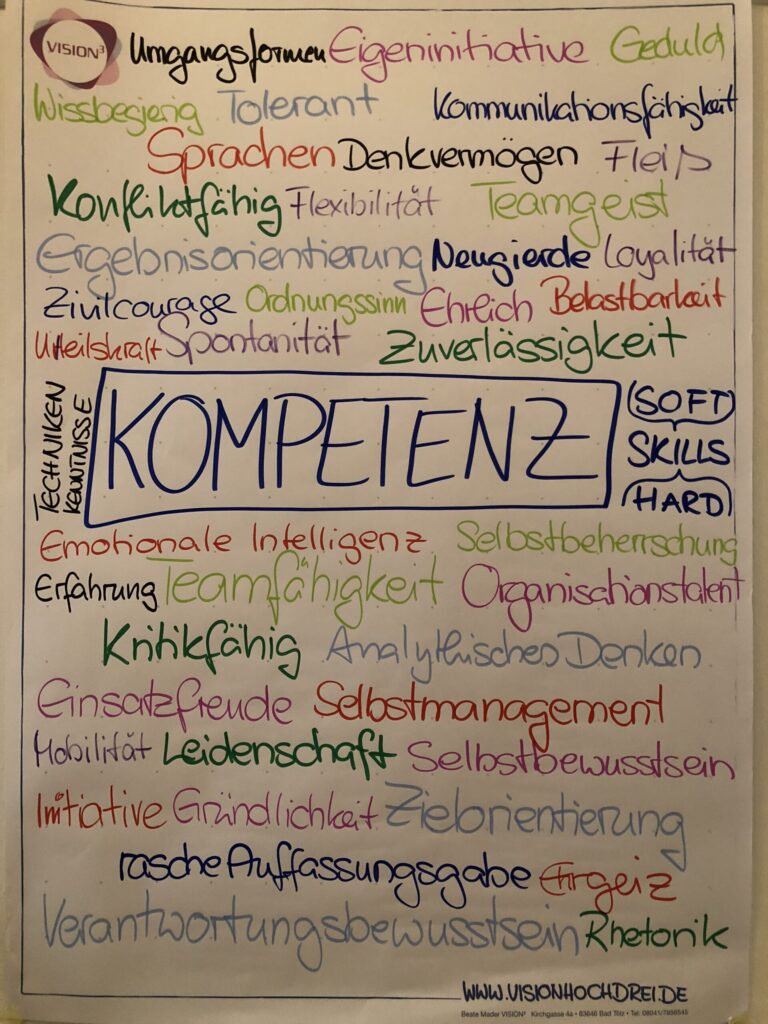 VISION³ Umgangsformen Eigeninitiative Geduld
Wissbegierig Tolerant Kommunikationsfähigkeit
Sprachen Denkvermögen Fleiß
Konfliktfähig Flexibilität Teamgeist
Ergebnisorientierung Neugierde Loyalität
Zivilcourage Ordnungssinn Ehrlich Belastbarkeit
Urteilskraft Spontanität Zuverlässigkeit
TECHNIKEN
KENNTNISSE
KOMPETENZ
(SOFT)
SKILLS
(HARD)
Emotionale Intelligenz Selbstbeherrschung
Erfahrung Teamfähigkeit Organisationstalent
Kritikfähig Analythisches Denken
Einsatzfreude Selbstmanagement
Mobilität Leidenschaft Selbstbewusstsein
Initiative Gründlichkeit Zielorientierung
rasche Auffassungsgabe Ehrgeiz
Verantwortungsbewusstsein Rhetorik
WWW.VISIONHOCHDREI.DE
Beate Mader VISION³ Kirchgasse 4a • 83646 Bad Tölz • Tel: 08041/7956545